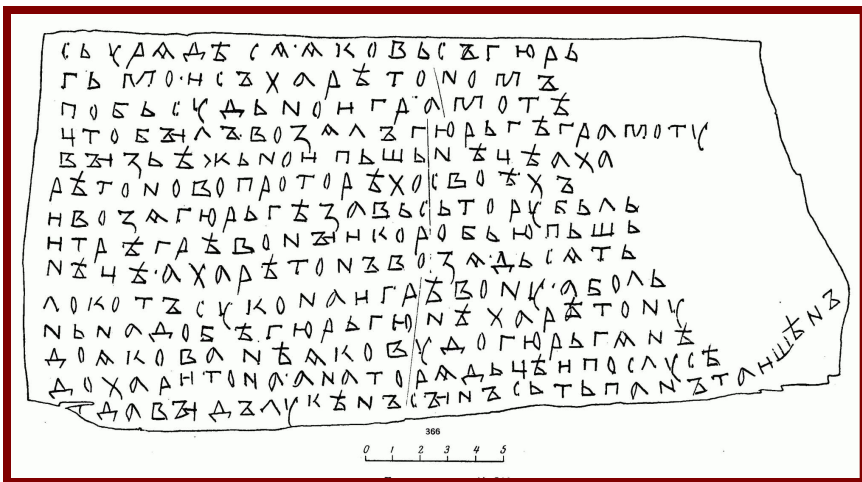 сьурѧдѣсѧ·ѧковьсъгюрь
гьмо·исъхарѣтономъ
побьсудьноигра·мотѣ
цтобꙑлъ·возѧлъгюрьгѣграмоту
вꙑзьѣжьноипьшьнѣцѣаха
рѣтоновопроторѣхосвоѣхъ
ивозѧгюрьгѣзавьсьторубьль
итрѣгрѣвонꙑикоробьюпьшь
нѣцѣ·ахарѣтонъвозѧ·дьсѧть
локотъсуконаигрѣвону·аболь
ньнадобѣгюрьгюнѣхарѣтону
доѧкованѣѧковудогюрьгѧнѣ
дохаритона·анаторѧдьцѣипослусѣ
давꙑдълукѣнъсꙑнъсьтьпанътаишѣнъ
366
0 1 2 3 4 5